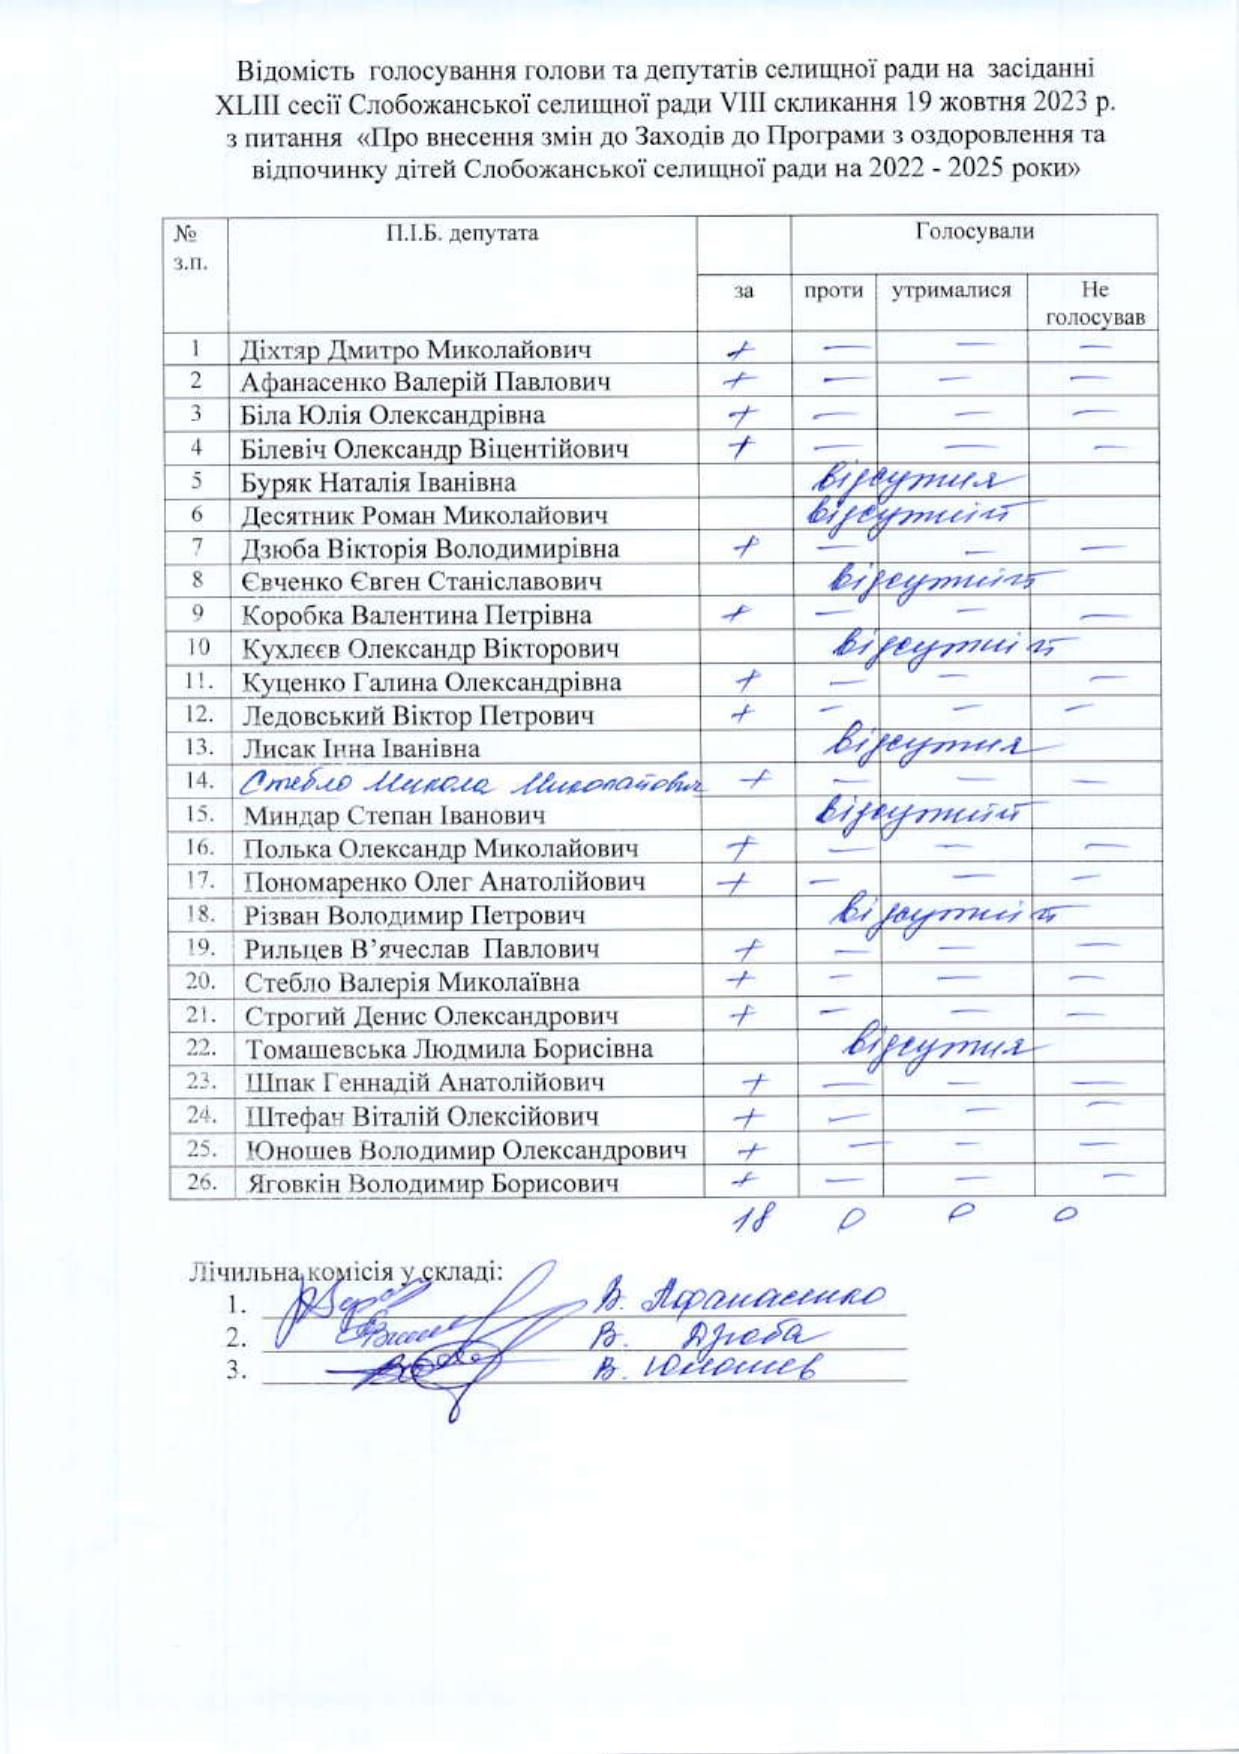 Відомість голосування голови та депутатів селищної ради на засіданні
XLIII сесії Слобожанської селищної ради VIII скликання 19 жовтня 2023 р.
з питання «Про внесення змін до Заходів до Програми з оздоровлення та
відпочинку дітей Слобожанської селищної ради на 2022 - 2025 роки»
№ з.п. П.І.Б. депутата Голосували
за проти утрималися Не голосував
1 Діхтяр Дмитро Миколайович + — — —
2 Афанасенко Валерій Павлович + — — —
3 Біла Юлія Олександрівна + — — —
4 Білевіч Олександр Віцентійович + — — —
5 Буряк Наталія Іванівна відсутня
6 Десятник Роман Миколайович відсутній
7 Дзюба Вікторія Володимирівна + — — —
8 Євченко Євген Станіславович відсутній
9 Коробка Валентина Петрівна + — — —
10 Кухлєєв Олександр Вікторович відсутній
11. Куценко Галина Олександрівна + — — —
12. Ледовський Віктор Петрович + — — —
13. Лисак Інна Іванівна відсутня
14. Стебло Микола Миколайович + — — —
15. Миндар Степан Іванович відсутній
16. Полька Олександр Миколайович + — — —
17. Пономаренко Олег Анатолійович + — — —
18. Різван Володимир Петрович відсутній
19. Рильцев В’ячеслав Павлович + — — —
20. Стебло Валерія Миколаївна + — — —
21. Строгий Денис Олександрович + — — —
22. Томашевська Людмила Борисівна відсутня
23. Шпак Геннадій Анатолійович + — — —
24. Штефан Віталій Олексійович + — — —
25. Юношев Володимир Олександрович + — — —
26. Яговкін Володимир Борисович + — — —
18 0 0 0
Лічильна комісія у складі:
1. В. Афанасенко
2. В. Дзюба
3. В. Юношев